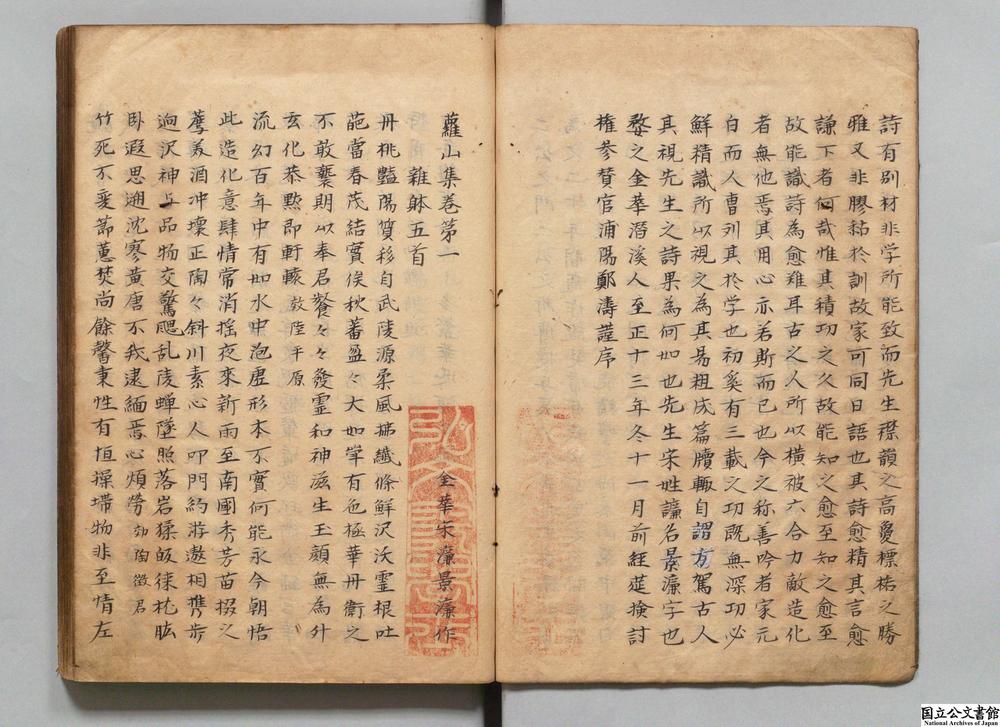 詩有別材非学所能致而先生襟韻之髙愛標格之勝
雅又非膠黏於訓故家可同日語也其詩愈精其言愈
謙下者何哉惟其積功之久故能知之愈至知之愈至
故能識詩為愈難耳古之人所以横被六合力敵造化
者無他焉其用心亦若斯而已也今之称善吟者家元
白而人曹列其於学也初奚有三載之功既無深功必
鮮精識所以視之為其易粗成篇牘輙自謂方駕古人
其視先生之詩果為何如也先生宋姓濂名景濂字也
婺之金華潜溪人至正十三年冬十一月前經筵検討
権参賛官浦陽鄭濤謹序
蘿山集巻第一
金華宋濂景濂作
雜躰五首
丹桃豔陽質移自武陵源柔風拂纎條鮮沢沃霊根吐
葩當春茂結實俟秋蕃盈々大如斝有色極華丹衞之
不敢褻期以奉君餐々々發霊和神滋生玉顔無為外
玄化恭黙即軒轅 效陸平原
流幻百年中有如水中泡虚形本不實何能永今朝悟
此造化意肆情常消揺夜來新雨至南園秀芳苗掇之
薦美酒冲懐正陶々斜川素心人叩門約游遨相携歩
逈沢神與品物交驚颸乱陵蟬墜照落岩猱皈徠枕肱
卧遐思遡沈寥黄唐不我逮緬焉心煩勞 効陶徴君
竹死不变節蕙焚尚餘馨秉性有恒操墆物非至情左
国立公文書館
National Archives of Japan